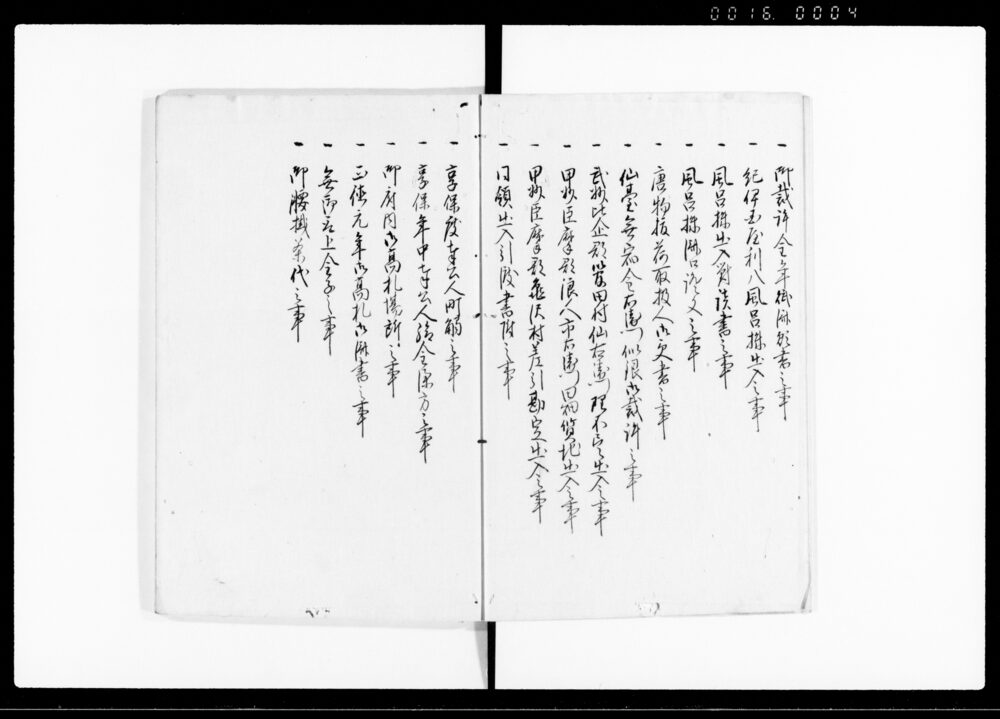 0016. 0004
一 御裁許金年賦済願書之事
一 紀伊国屋利八風呂株出入之事
一 風呂株出入対談書之事
一 風呂株済口證文之事
一 唐物抜荷取扱人御文書之事
一 仙臺無宿金右衛門似銀御裁許之事
一 武州比企郡 田村仙右衛門 出入之事
一 甲州巨摩郡浪人市右衛門田畑質地出入之事
一 甲州巨摩郡亀沢村差引勘定出入之事
一 同領出入引渡書附之事
一 享保度奉公人町觸之事
一 享保年中奉公人給金済方之事
一 御府内御高札場所之事
一 正徳元年御高札御 書之事
一 無 上金子之事
一 御腰掛茶代之事